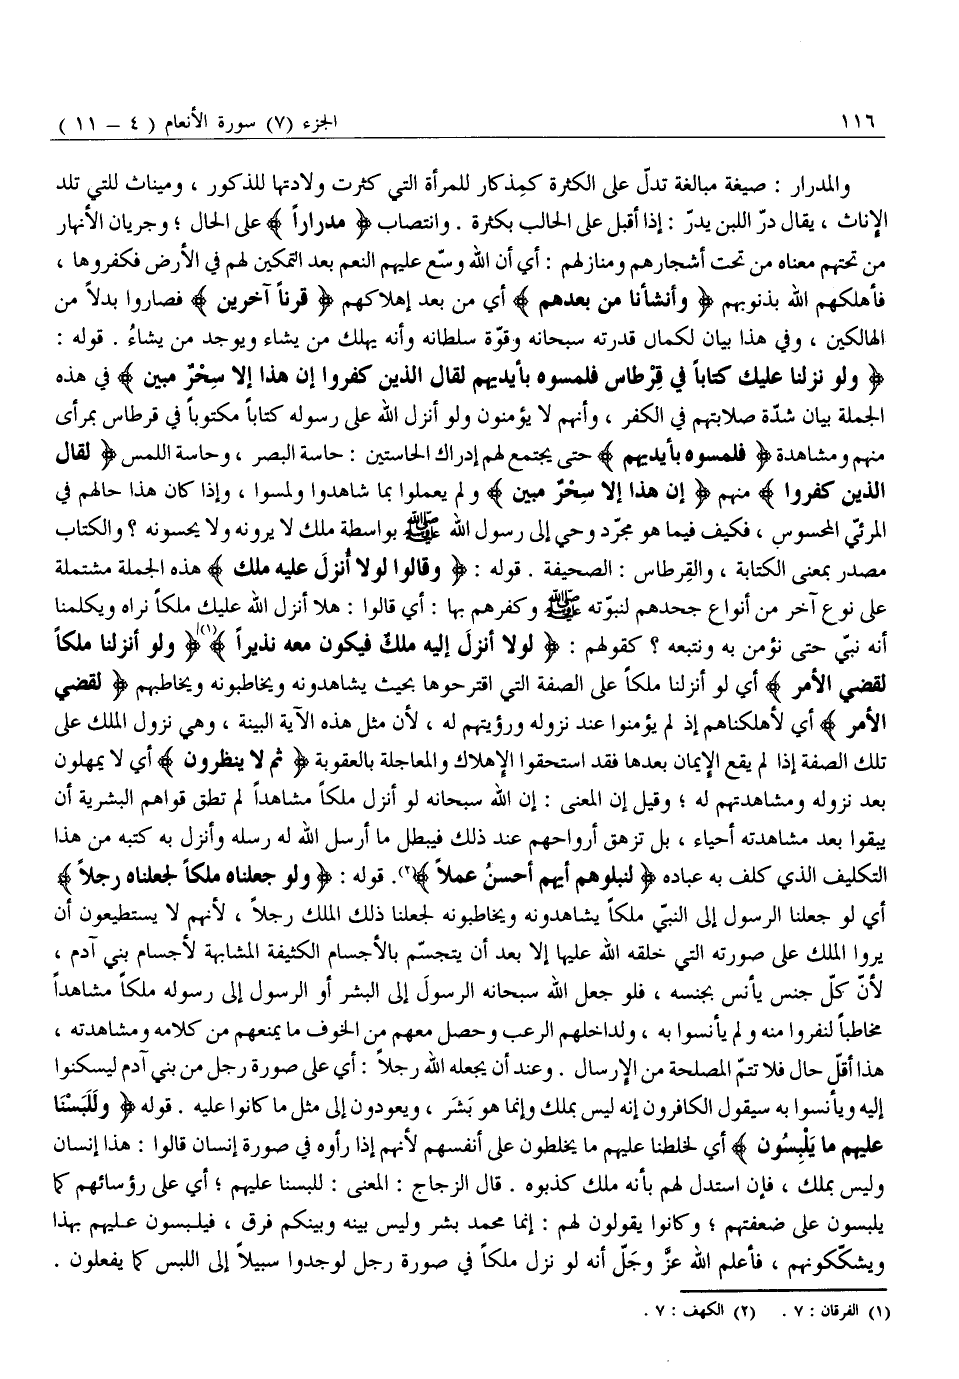 ١١٦ الجزء (٧) سورة الأنعام ( ٤ – ١١ )
والمدرار : صيغة مبالغة تدلّ على الكثرة كمِذكار للمرأة التي كثرت ولادتها للذكور ، وميناث للتي تلد
الإناث ، يقال درّ اللبن يدرّ : إذا أقبل على الحالب بكثرة . وانتصاب ﴿ مدراراً ﴾ على الحال ؛ وجريان الأنهار
من تحتهم معناه من تحت أشجارهم ومنازلهم : أي أن الله وسّع عليهم النعم بعد التمكين لهم في الأرض فكفروها ،
فأهلكهم الله بذنوبهم ﴿ وأنشأنا من بعدهم ﴾ أي من بعد إهلاكهم ﴿ قرناً آخرين ﴾ فصاروا بدلاً من
الهالكين ، وفي هذا بيان لكمال قدرته سبحانه وقوّة سلطانه وأنه يهلك من يشاء ويوجد من يشاءُ . قوله :
﴿ ولو نزلنا عليك كتاباً في قِرْطاس فلمسوه بأيديهم لقال الذين كفروا إن هذا إلا سِحْرٌ مبين ﴾ في هذه
الجملة بيان شدّة صلابتهم في الكفر ، وأنهم لا يؤمنون ولو أنزل الله على رسوله كتاباً مكتوباً في قرطاس بمرأى
منهم ومشاهدة ﴿ فلمسوه بأيديهم ﴾ حتى يجتمع لهم إدراك الحاستين : حاسة البصر ، وحاسة اللمس ﴿ لقال
الذين كفروا ﴾ منهم ﴿ إن هذا إلا سِحْرٌ مبين ﴾ ولم يعملوا بما شاهدوا ولمسوا ، وإذا كان هذا حالهم في
المرئيّ المحسوس ، فكيف فيما هو مجرّد وحي إلى رسول الله ﷺ بواسطة ملك لا يرونه ولا يحسونه ؟ والكتاب
مصدر بمعنى الكتابة ، والقِرطاس : الصحيفة . قوله : ﴿ وقالوا لولا أُنزلَ عليه ملك ﴾ هذه الجملة مشتملة
على نوع آخر من أنواع جحدهم لنبوّته ﷺ وكفرهم بها : أي قالوا : هلا أنزل الله عليك ملكاً نراه ويكلمنا
أنه نبيّ حتى نؤمن به ونتبعه ؟ كقولهم : ﴿ لولا أنزلَ إليه ملكٌ فيكون معه نذيراً ﴾(١) ﴿ ولو أنزلنا ملكاً
لقضي الأمر ﴾ أي لو أنزلنا ملكاً على الصفة التي اقترحوها بحيث يشاهدونه ويخاطبونه ويخاطبهم ﴿ لقضي
الأمر ﴾ أي لأهلكناهم إذ لم يؤمنوا عند نزوله ورؤيتهم له ، لأن مثل هذه الآية البينة ، وهي نزول الملك على
تلك الصفة إذا لم يقع الإيمان بعدها فقد استحقوا الإهلاك والمعاجلة بالعقوبة ﴿ ثم لا ينظرون ﴾ أي لا يمهلون
بعد نزوله ومشاهدتهم له ؛ وقيل إن المعنى : إن الله سبحانه لو أنزل ملكاً مشاهداً لم تطق قواهم البشرية أن
يبقوا بعد مشاهدته أحياء ، بل تزهق أرواحهم عند ذلك فيبطل ما أرسل الله له رسله وأنزل به كتبه من هذا
التكليف الذي كلف به عباده ﴿ لنبلوهم أيهم أحسنُ عملاً ﴾(٢). قوله : ﴿ ولو جعلناه ملكاً لجعلناه رجلاً ﴾
أي لو جعلنا الرسول إلى النبيّ ملكاً يشاهدونه ويخاطبونه لجعلنا ذلك الملك رجلاً ، لأنهم لا يستطيعون أن
يروا الملك على صورته التي خلقه الله عليها إلا بعد أن يتجسّم بالأجسام الكثيفة المشابهة لأجسام بني آدم ،
لأنّ كلّ جنس يأنس بجنسه ، فلو جعل الله سبحانه الرسولَ إلى البشر أو الرسول إلى رسوله ملكاً مشاهداً
مخاطباً لنفروا منه ولم يأنسوا به ، ولداخلهم الرعب وحصل معهم من الخوف ما يمنعهم من كلامه ومشاهدته ،
هذا أقلّ حال فلا تتمّ المصلحة من الإرسال . وعند أن يجعله الله رجلاً : أي على صورة رجل من بني آدم ليسكنوا
إليه ويأنسوا به سيقول الكافرون إنه ليس بملك وإنما هو بَشَر ، ويعودون إلى مثل ما كانوا عليه . قوله ﴿ وَلَلَبَسْنَا
عليهم ما يَلْبِسُون ﴾ أي لخلطنا عليهم ما يخلطون على أنفسهم لأنهم إذا رأوه في صورة إنسان قالوا : هذا إنسان
وليس بملك ، فإن استدل لهم بأنه ملك كذبوه . قال الزجاج : المعنى : للبسنا عليهم ؛ أي على رؤسائهم كما
يلبسون على ضعفتهم ؛ وكانوا يقولون لهم : إنما محمد بشر وليس بينه وبينكم فرق ، فيلبسون عليهم بهذا
ويشكّكونهم ، فأعلم الله عزَّ وجَلّ أنه لو نزل ملكاً في صورة رجل لوجدوا سبيلاً إلى اللبس كما يفعلون .
(١) الفرقان : ٧ . (٢) الكهف : ٧ .